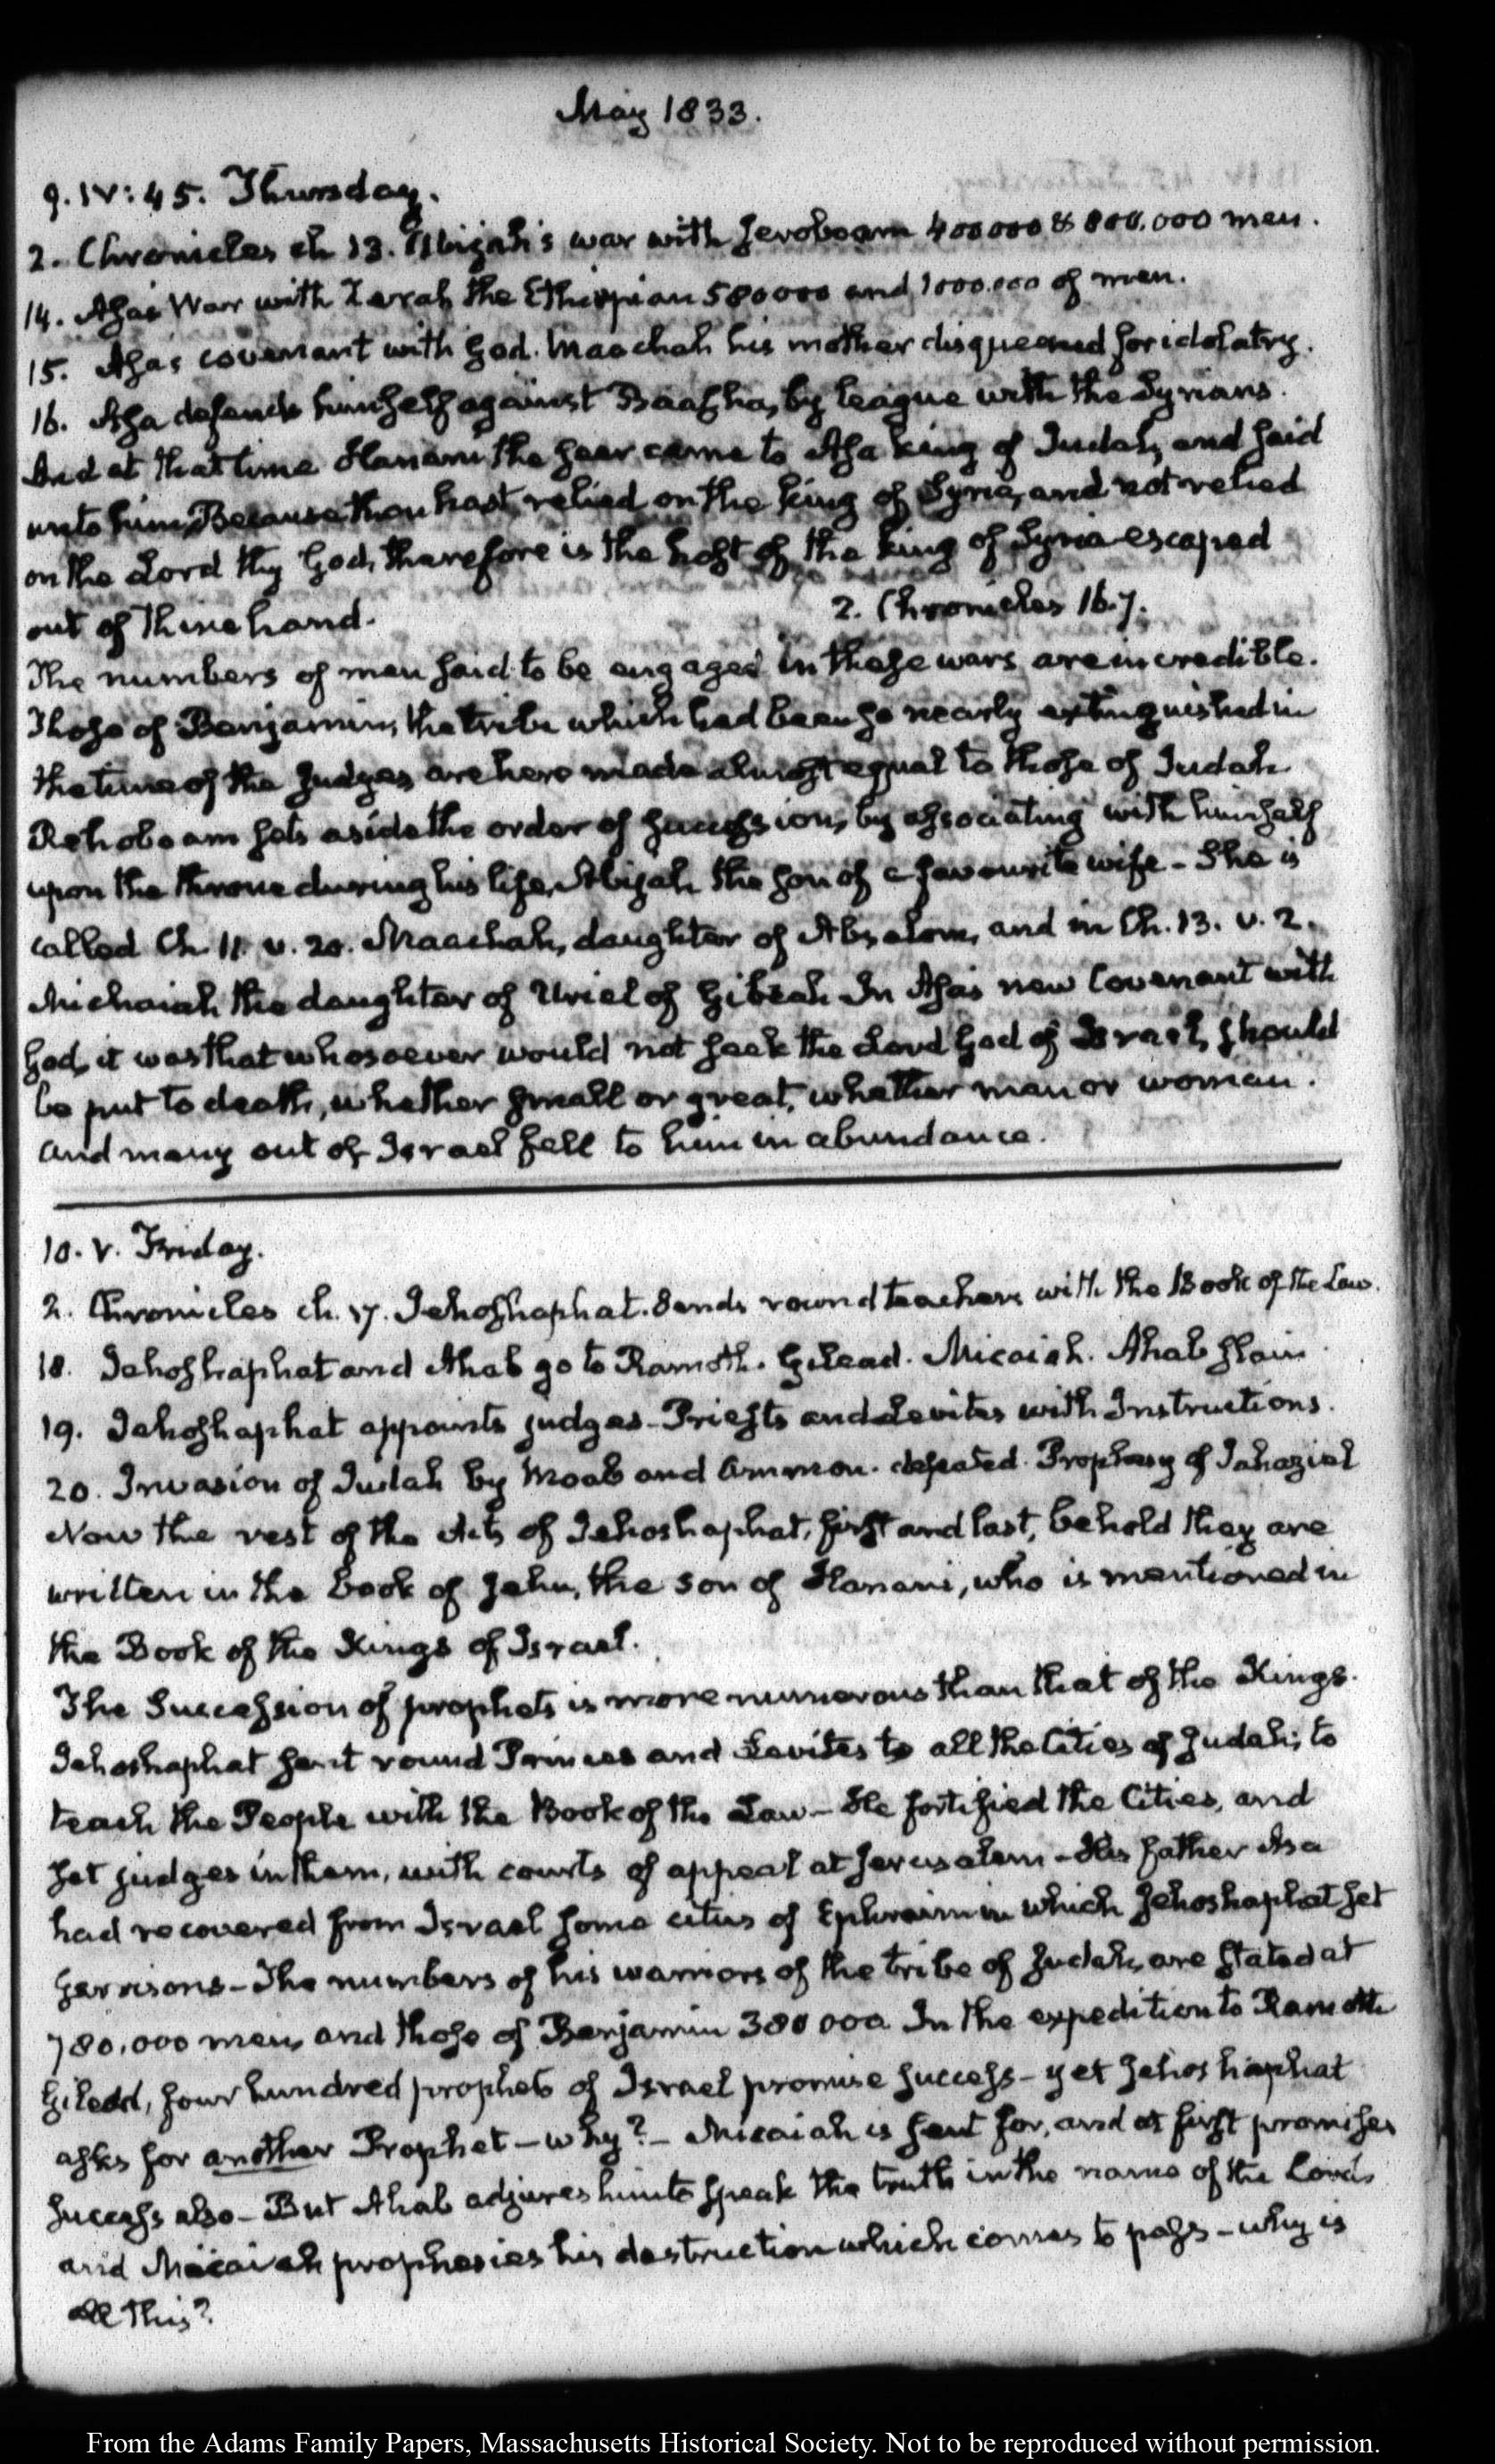 May 1833.
9. IV:45. Thursday.
2. Chronicles ch 13. Abijah's war with Jeroboam 400000 & 800.000 men.
14. Asa's War with Zerah the Ethiopian 580000 and 1000.000 of men.
15. Asa's covenant with God. Maachah his mother disqueened for idolatry.
16. Asa defends himself against Baasha, by league with the Syrians.
And at that time Hanani the seer came to Asa king of Judah, and said
unto him, Because thou hast relied on the king of Syria, and not relied
on the Lord thy God, therefore is the host of the king of Syria escaped
out of thine hand. 2. Chronicles 16.7.
The numbers of men said to be engaged in these wars are incredible.
Those of Benjamin, the tribe which had been so nearly extinguished in
the time of the Judges, are here made almost equal to those of Judah
Rehoboam sets aside the order of succession, by associating with himself
upon the throne during his life, Abijah the son of a favourite wife - She is
called Ch. 11. v. 20. Maachah, daughter of Absalom, and in Ch. 13. v. 2.
Michaiah the daughter of Uriel of Gibeah In Asa's new Covenant with
God, it was that whosoever would not seek the Lord God of Israel, should
be put to death, whether small or great, whether man or woman.
and many out of Israel fell to him in abundance.
10. V. Friday.
2. Chronicles ch. 17. Jehoshaphat. Sends round teachers with the Book of the Law.
18. Jehoshaphat and Ahab go to Ramoth. Gilead. Micaiah. Ahab slain
19. Jehoshaphat appoints judges - Priests and Levites with Instructions.
20. Invasion of Judah by Moab and Ammon. defeated. Prophecy of Jahaziel
Now the rest of the Acts of Jehoshaphat, first and last, behold they are
written in the book of Jehu, the son of Hanani, who is mentioned in
the Book of the Kings of Israel.
The Succession of prophets is more numerous than that of the Kings.
Jehoshaphat sent round Princes and Levites to all the Cities of Judah; to
teach the People with the Book of the Law - He fortified the Cities, and
set judges in them, with courts of appeal at Jerusalem - His father Asa
had recovered from Israel some cities of Ephraim in which Jehoshaphat set
garrisons - The numbers of his warriors of the tribe of Judah, are stated at
780.000 men, and those of Benjamin 380000. In the expedition to Ramoth
Gilead, four hundred prophets of Israel promise success - yet Jehoshaphat
asks for another Prophet - why? - Micaiah is sent for, and at first promises
success also - But Ahab adjures him to speak the truth in the name of the Lord,
and Micaiah prophesies his destruction which comes to pass - why is
all this?
From the Adams Family Papers, Massachusetts Historical Society. Not to be reproduced without permission.